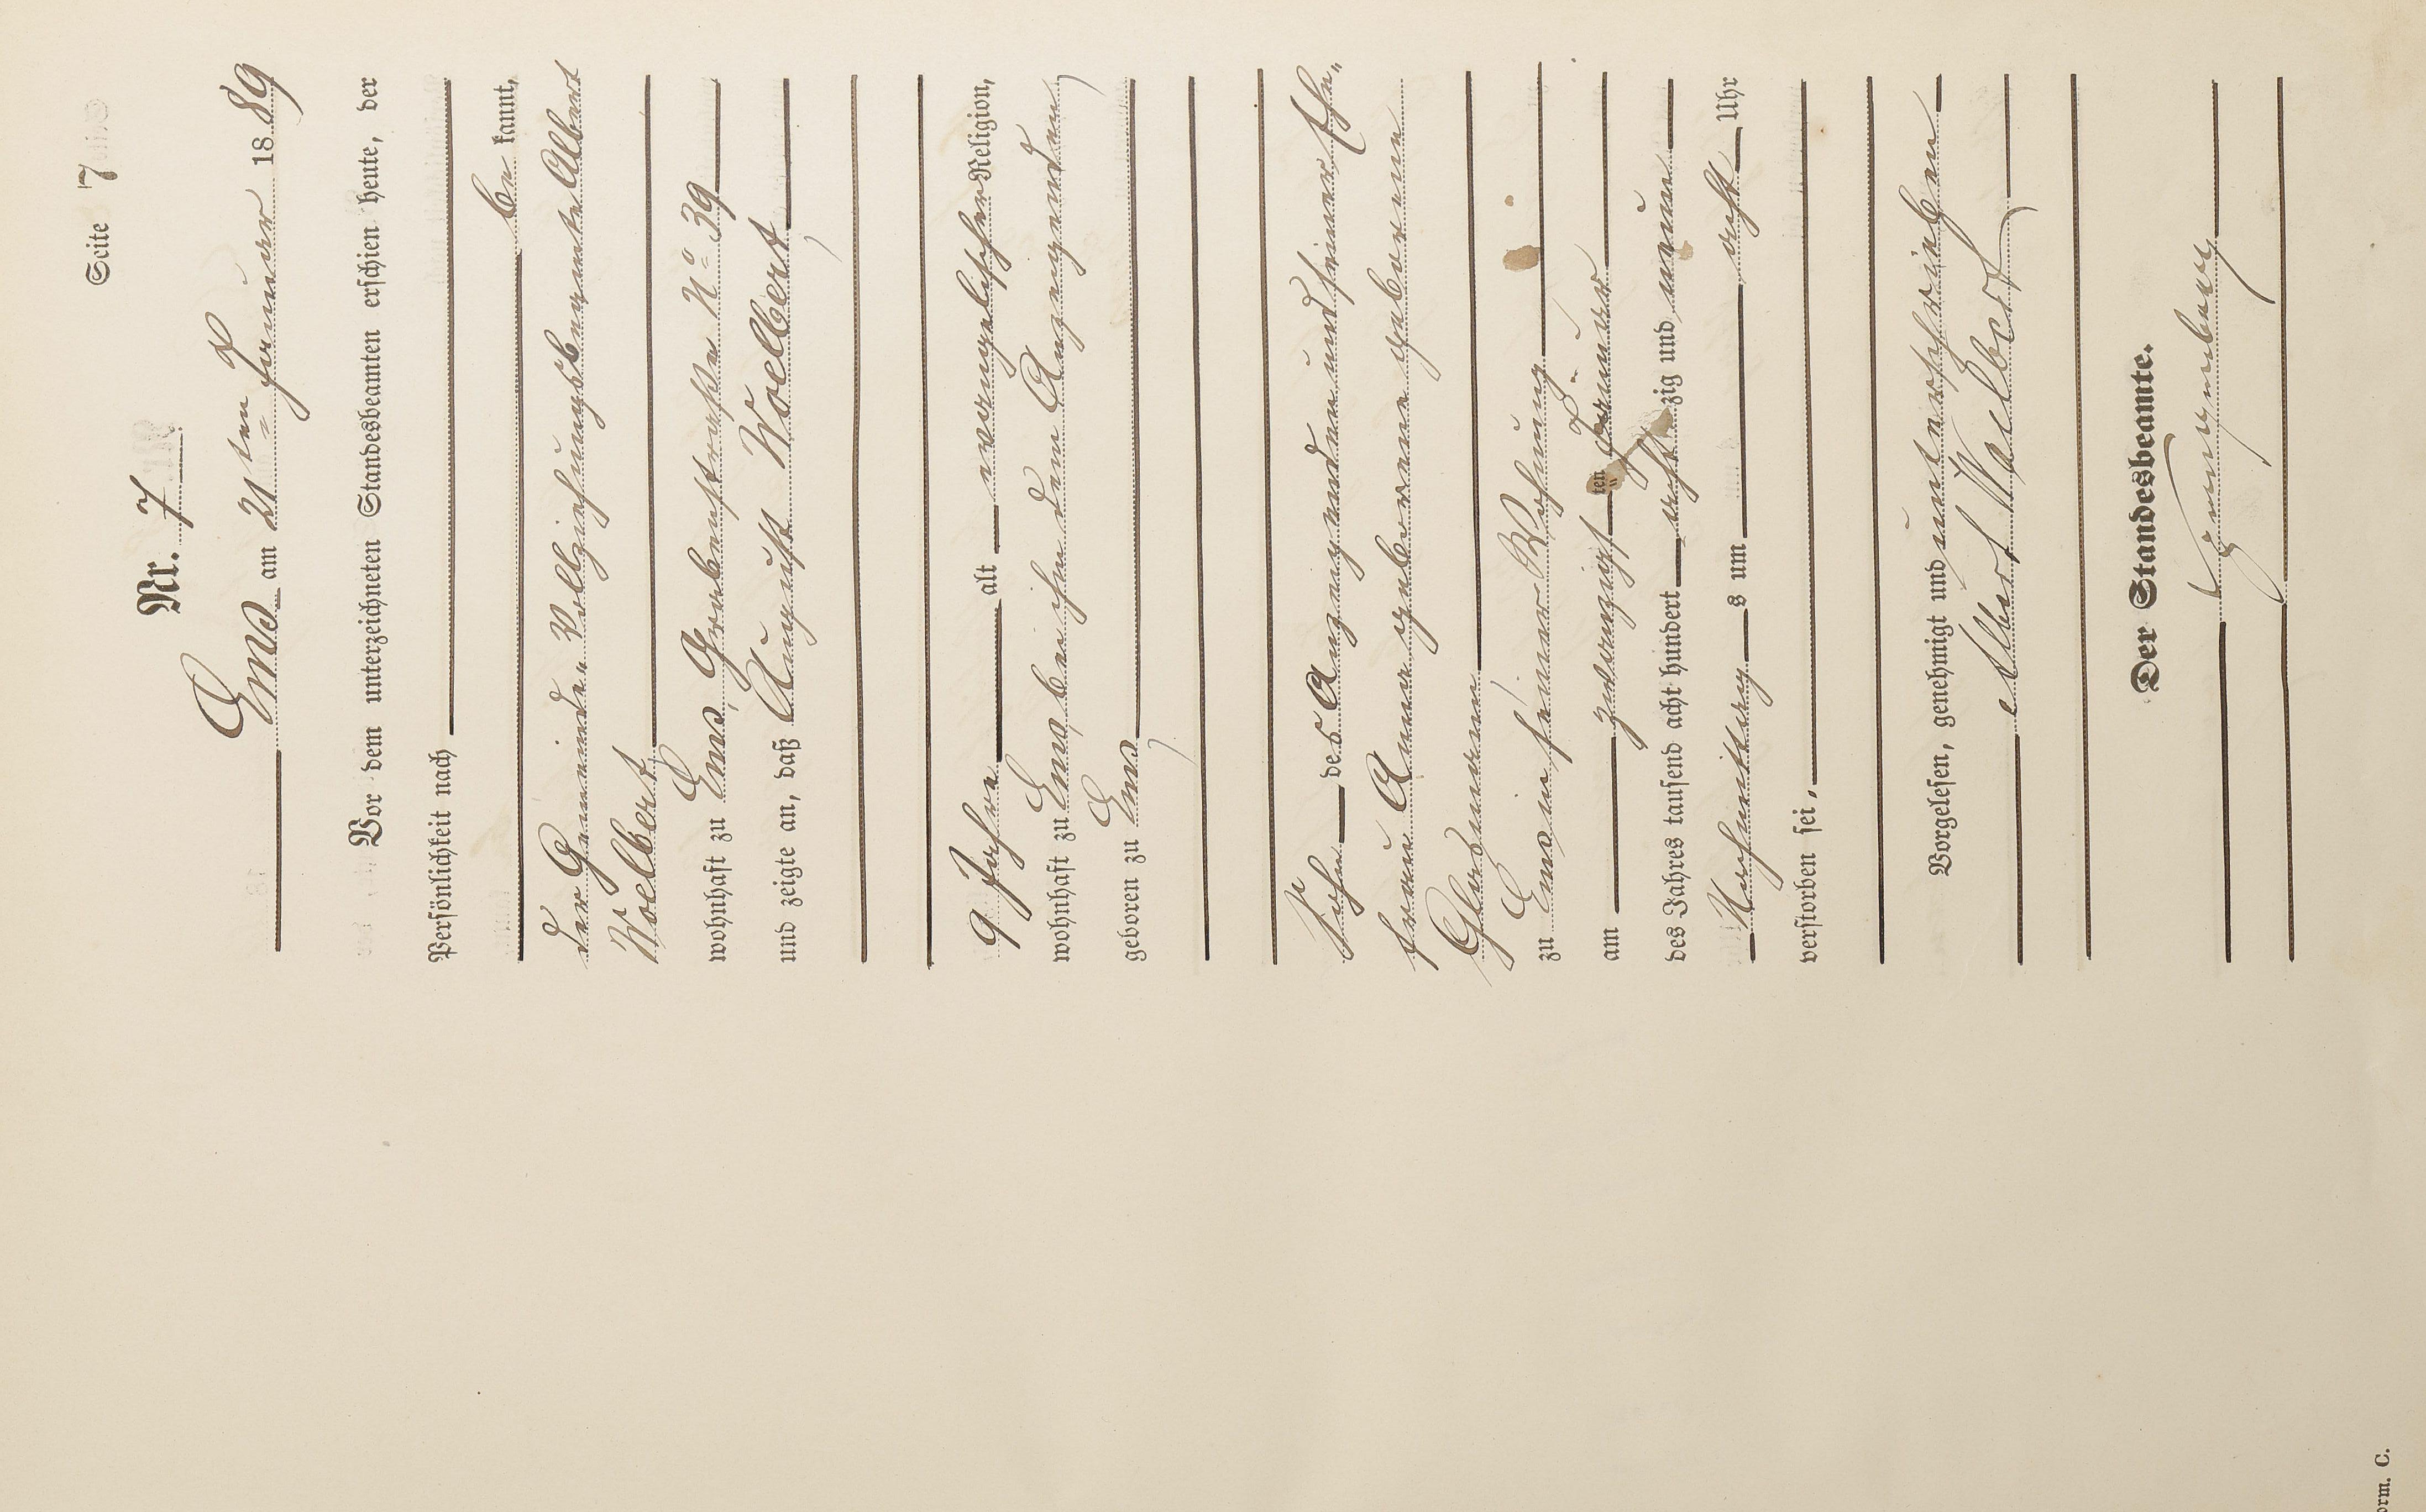 Seite 7
Nr. 7
Ems am 21ten Januar 1889
Vor dem unterzeichneten Standesbeamten erschien heute, der
Persönlichkeit nach
be kannt,
der Gemeinde-Vollziehungsbeamte Albert
Woelbert
wohnhaft zu Ems, Grabenstraße No 39
und zeigte an, daß August Woelbert,
9 Jahre alt evangelischer Religion,
wohnhaft zu Ems bei ihm dem Anzeigenden,
geboren zu Ems,
Sohn des Anzeigenden und seiner Ehe-
frau Anna geborene geborene
zu Ems in seiner Wohnung
am zwanzigsten Januar
des Jahres tausend acht hundert acht zig und neun
Nachmittag s um acht Uhr
verstorben sei,
Vorgelesen, genehmigt und unterschrieben
Albert Woelbert
Der Standesbeamte.
orm. C.